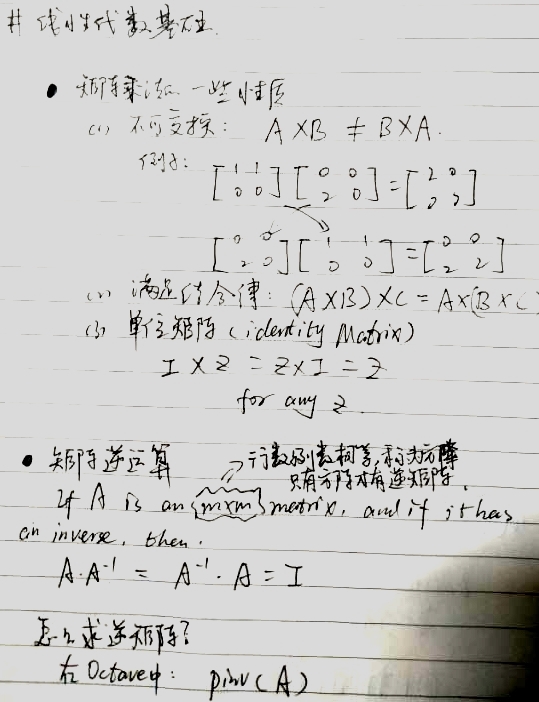 # 线性代数基础
• 矩阵乘法的一些性质
(1) 不可交换: A×B ≠ B×A.
例如:
[1 1; 0 0] [0 0; 2 0] = [2 0; 0 0]
[0 0; 2 0] [1 1; 0 0] = [0 0; 2 2]
(2) 满足结合律: (A×B)×C = A×(B×C
(3) 单位矩阵 (identity Matrix)
I × Z = Z×I = Z
for any z.
• 矩阵逆运算
→行数列数相等,称为方阵
只有方阵才有逆矩阵.
If A is an {m×m} matrix, and if it has
an inverse, then.
A·A⁻¹ = A⁻¹·A = I
怎么求逆矩阵?
在Octave中: pinv(A)